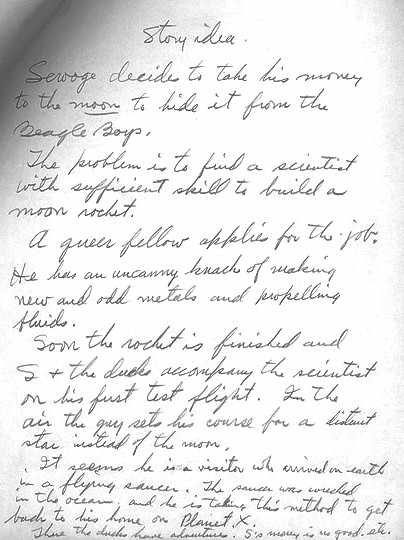 Story idea.
Scrooge decides to take his money
to the moon to hide it from the
Beagle Boys.
The problem is to find a scientist
with sufficient skill to build a
moon rocket.
A queer fellow applies for the job.
He has an uncanny knack of making
new and odd metals and propelling
fluids.
Soon the rocket is finished and
S + the ducks accompany the scientist
on his first test flight. In the
air the guy sets his course for a distant
star instead of the moon.
It seems he is a visitor who arrived on earth
in a flying saucer. The saucer was wrecked
in the ocean. and he is taking this method to get
back to his home on Planet X.
There the ducks have adventures. S's money is no good. etc.